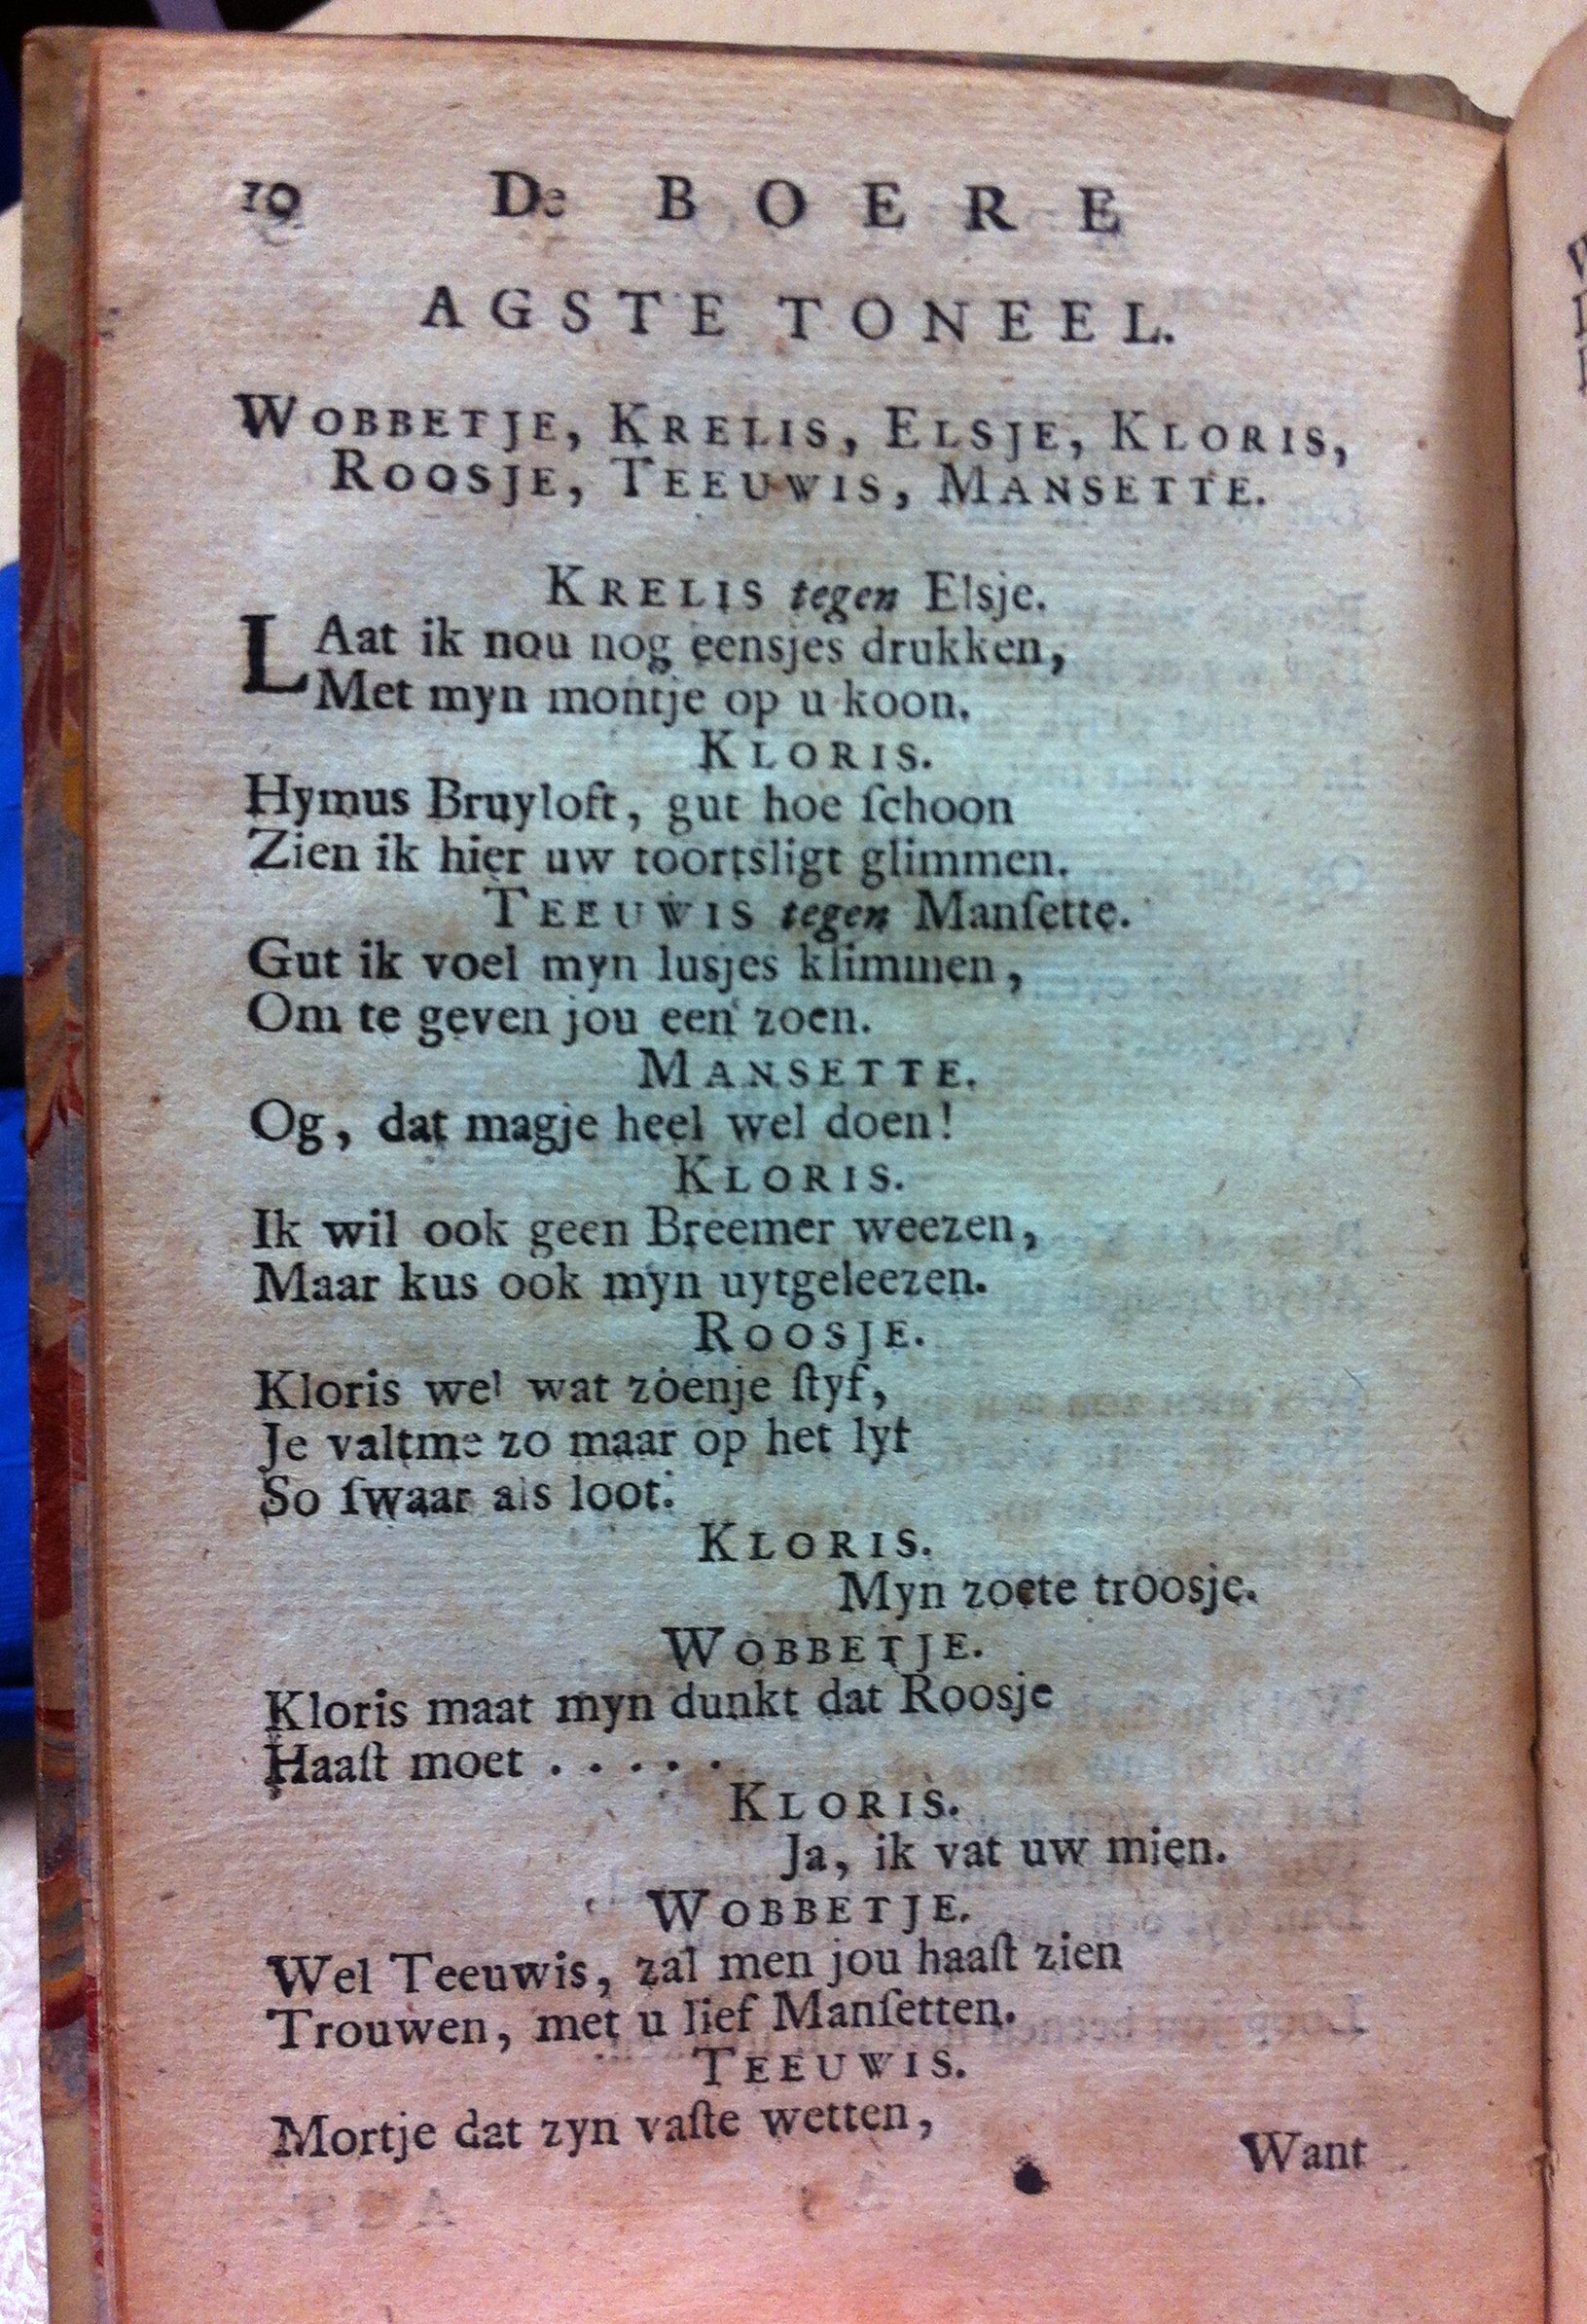 10 De BOERE
AGSTE TONEEL.
WOBBETJE, KRELIS, ELSJE, KLORIS,
ROOSJE, TEEUWIS, MANSETTE.
KRELIS tegen Elsje.
LAat ik nou nog eensjes drukken,
Met myn montje op u koon.
KLORIS.
Hymus Bruyloft, gut hoe ſchoon
Zien ik hier uw toortsligt glimmen.
TEEUWIS tegen Manſette.
Gut ik voel myn lusjes klimmen,
Om te geven jou een zoen.
MANSETTE.
Og, dat magje heel wel doen!
KLORIS.
Ik wil ook geen Breemer weezen,
Maar kus ook myn uytgeleezen.
ROOSJE.
Kloris wel wat zoenje ſtyf,
Je valtme zo maar op het lyf
So ſwaar als loot.
KLORIS.
Myn zoete troosje.
WOBBETJE.
Kloris maat myn dunkt dat Roosje
Haaſt moet . . . . .
KLORIS.
Ja, ik vat uw mien.
WOBBETJE.
Wel Teeuwis, zal men jou haaſt zien
Trouwen, met u lief Manſetten.
TEEUWIS.
Mortje dat zyn vaſte wetten,
Want